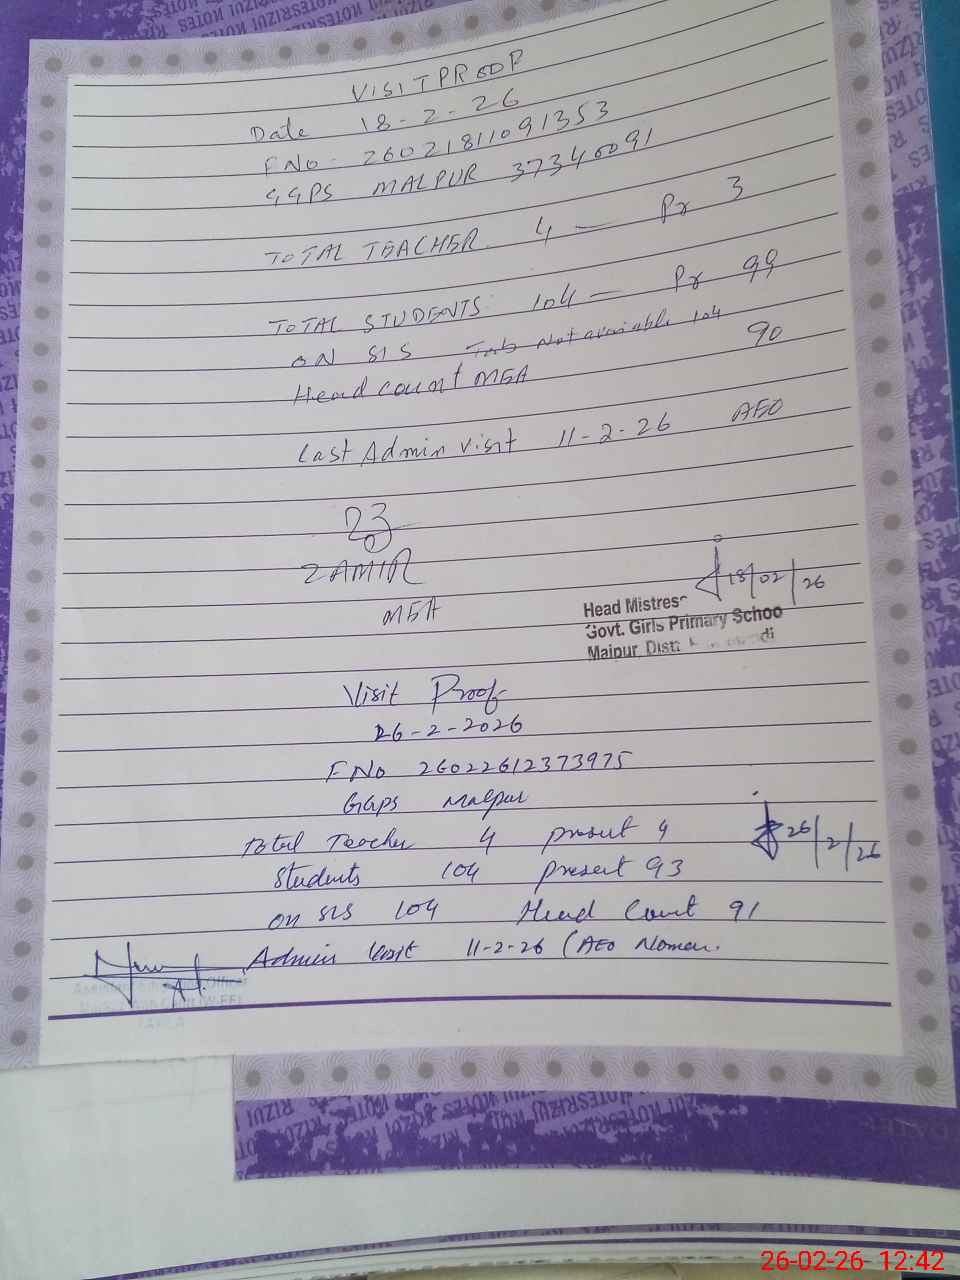 VISIT PROOF
Date 18-2-26
F.No- 26021811091353
GGPS MALPUR 37340091
TOTAL TEACHER 4 — Pr 3
TOTAL STUDENTS: 104 — Pr 99
ON SIS Tab Not avaiable 104
Head count MEA 90
Last Admin visit 11-2-26 AEO
ZAMIR
MEA
18/02/26
Head Mistress
Govt. Girls Primary Schoo
Maipur Distt
Visit Proof
26-2-2026
F No 26022612373975
GGPS Malpur
Total Teacher 4 present 4
26/2/26
Students 104 present 93
on SIS 104 Head Count 91
Admin Visit 11-2-26 (AEO Noman.
26-02-26- 12:42